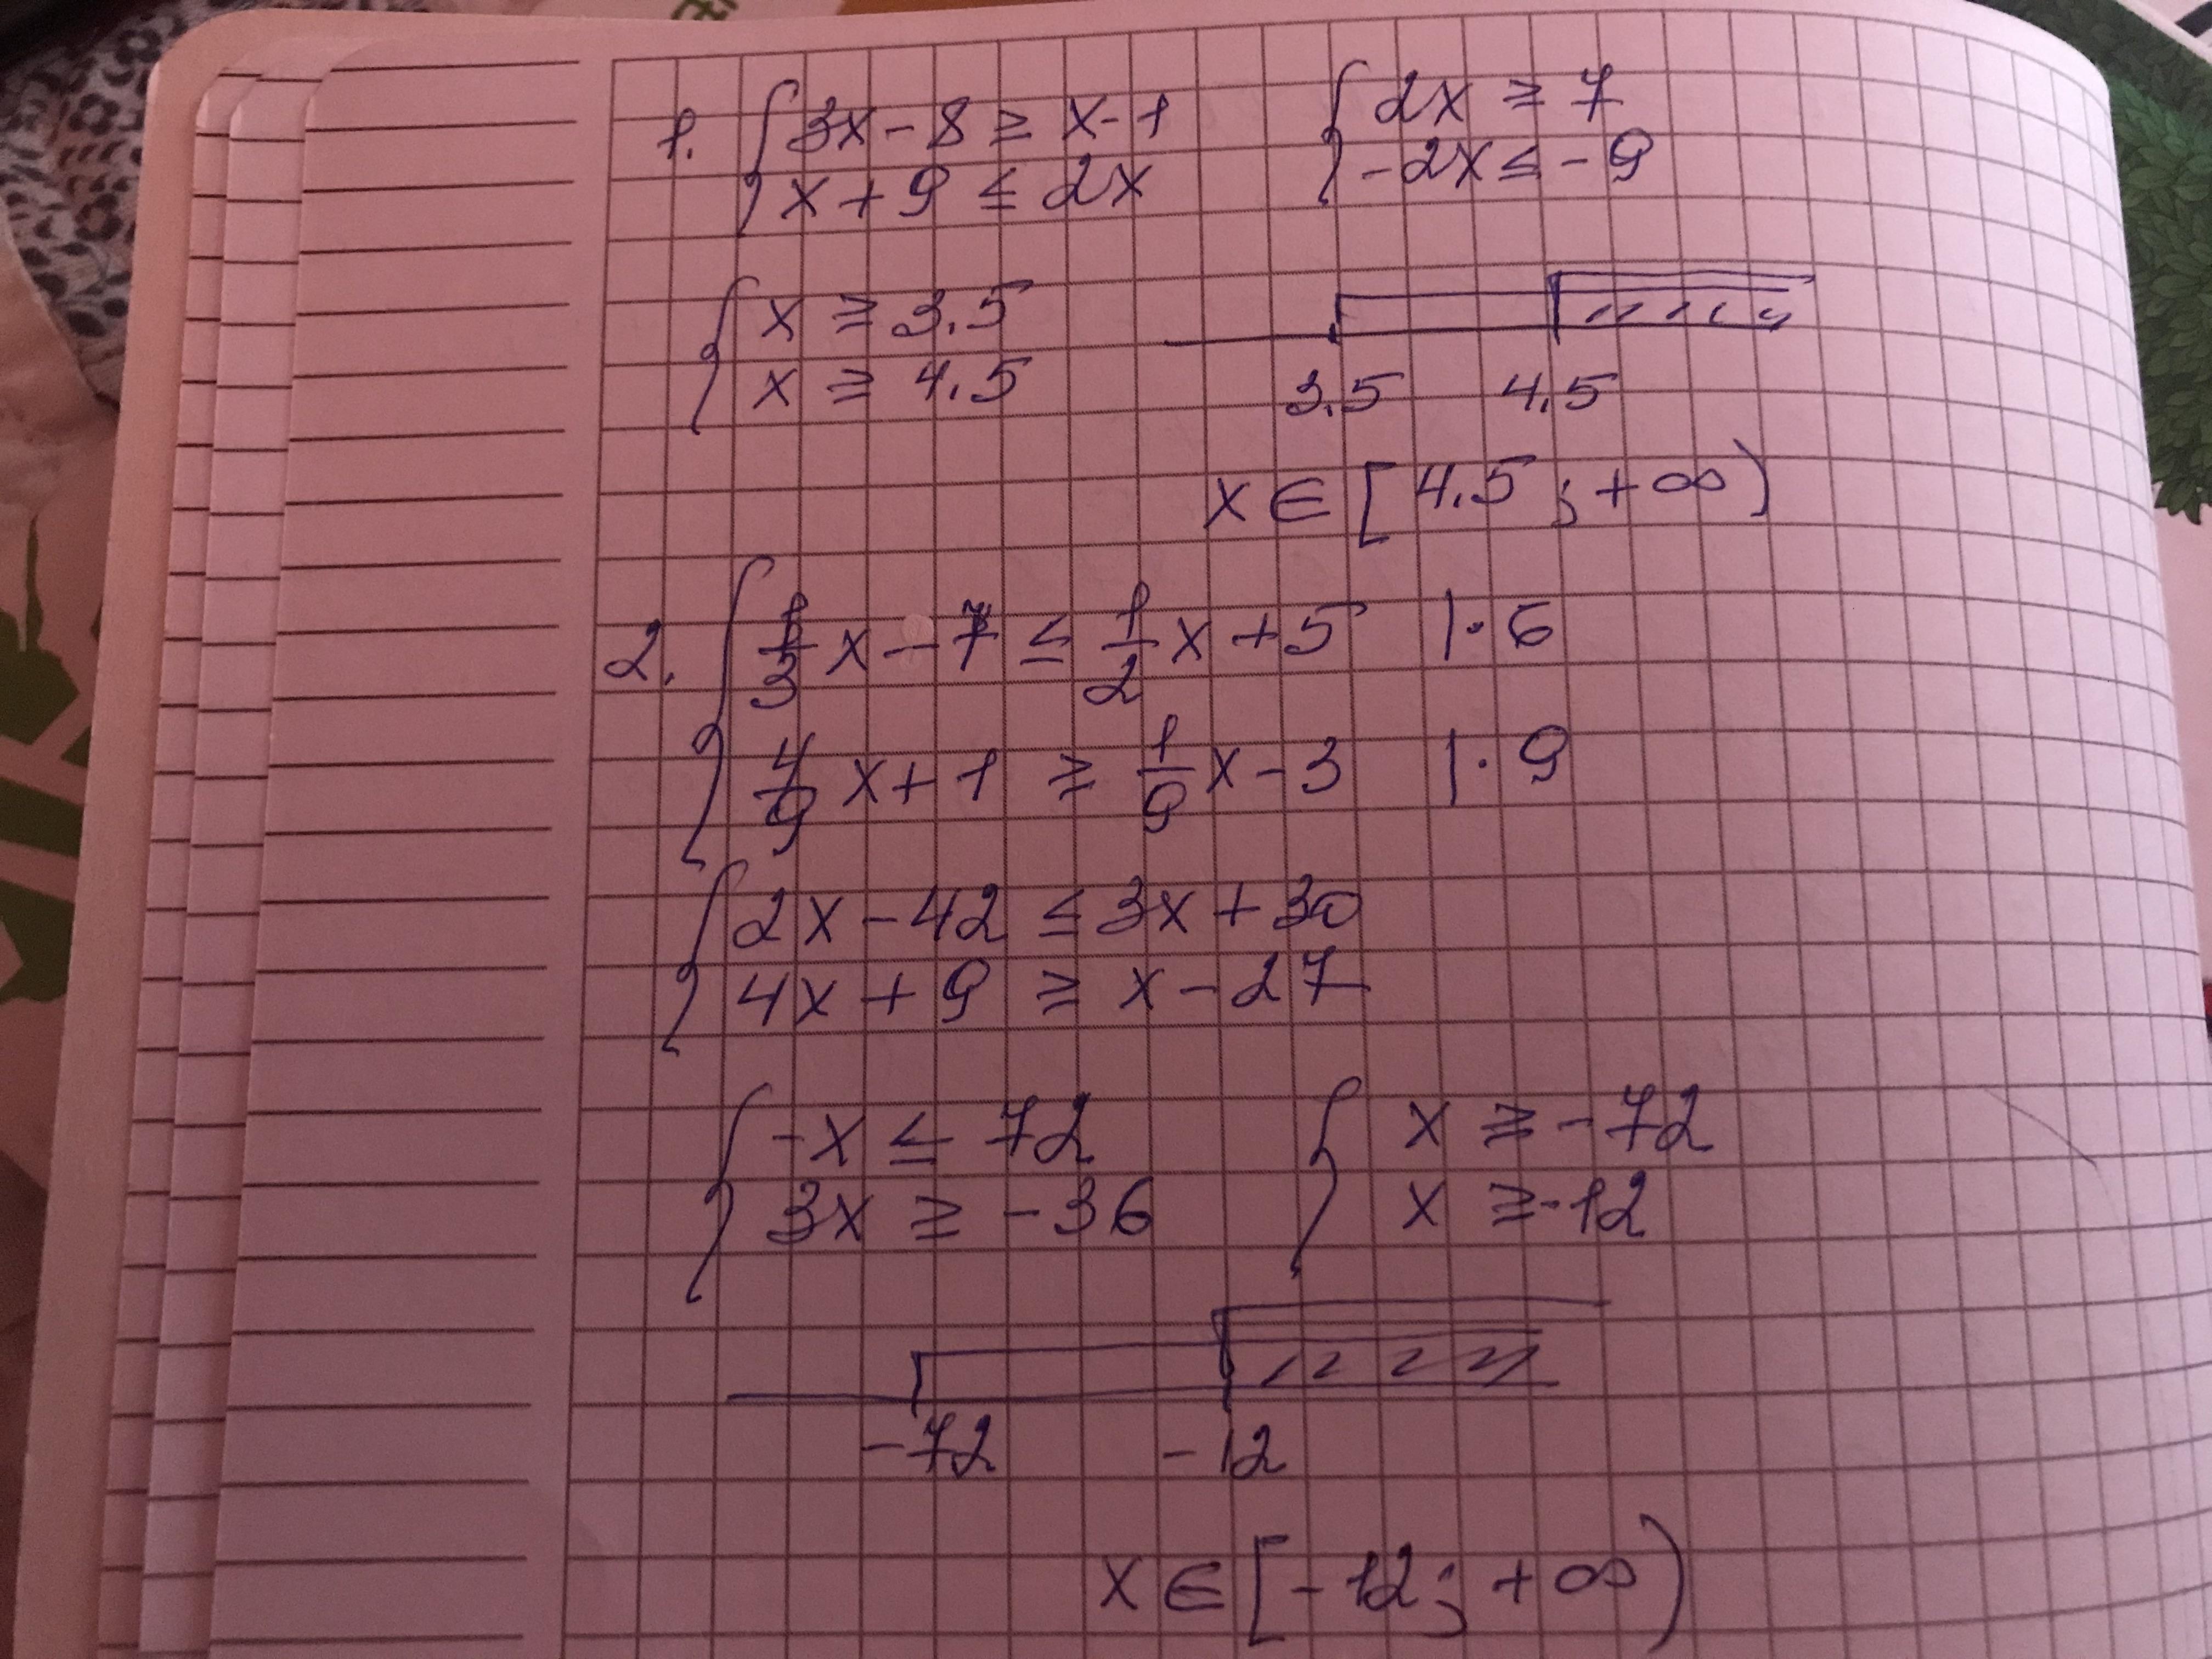 1. { 3x - 8 ≥ x - 1
x + 9 ≤ 2x
{ 2x ≥ 7
-2x ≤ -9
{ x ≥ 3.5
x ≥ 4.5
3.5 4.5
x ∈ [4.5; +∞)
2. { 1/3 x - 7 ≤ 1/2 x + 5 | · 6
4/9 x + 1 ≥ 1/9 x - 3 | · 9
{ 2x - 42 ≤ 3x + 30
4x + 9 ≥ x - 27
{ -x ≤ 72
3x ≥ -36
{ x ≥ -72
x ≥ -12
-72 -12
x ∈ [-12; +∞)